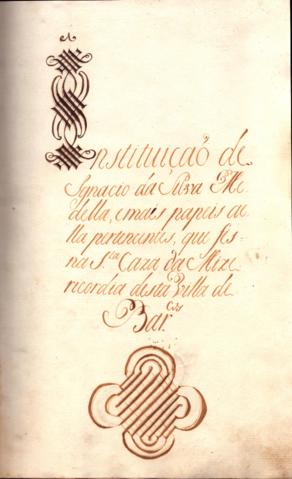 Instituiçaõ de
Ignacio da Silva Me
della, e mais papeis ae
lla pertencentes, que fes
na S.ta Caza da Mize
ricordia desta Villa de
Bar.cos